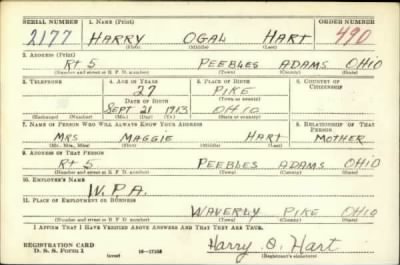 SERIAL NUMBER 1. NAME (Print) ORDER NUMBER
2177 HARRY OGAL HART 490
(First) (Middle) (Last)
2. ADDRESS (Print)
Rt 5 PEEBLES ADAMS OHIO
(Number and street or R. F. D. number) (Town) (County) (State)
3. TELEPHONE 4. AGE IN YEARS 5. PLACE OF BIRTH 6. COUNTRY OF CITIZENSHIP
27 PIKE
DATE OF BIRTH (Town or county)
SEPT 21 1913 OHIO
(Exchange) (Number) (Mo.) (Day) (Yr.) (State or country)
7. NAME OF PERSON WHO WILL ALWAYS KNOW YOUR ADDRESS 8. RELATIONSHIP OF THAT PERSON
MRS MAGGIE HART MOTHER
(Mr., Mrs., Miss) (First) (Middle) (Last)
9. ADDRESS OF THAT PERSON
Rt 5 PEEBLES ADAMS OHIO
(Number and street or R. F. D. number) (Town) (County) (State)
10. EMPLOYER'S NAME
W.P.A.
11. PLACE OF EMPLOYMENT OR BUSINESS
WAVERLY PIKE OHIO
(Number and street or R. F. D. number) (Town) (County) (State)
I AFFIRM THAT I HAVE VERIFIED ABOVE ANSWERS AND THAT THEY ARE TRUE.
REGISTRATION CARD
D. S. S. Form 1 16-17105 Harry O. Hart
(over) (Registrant's signature)